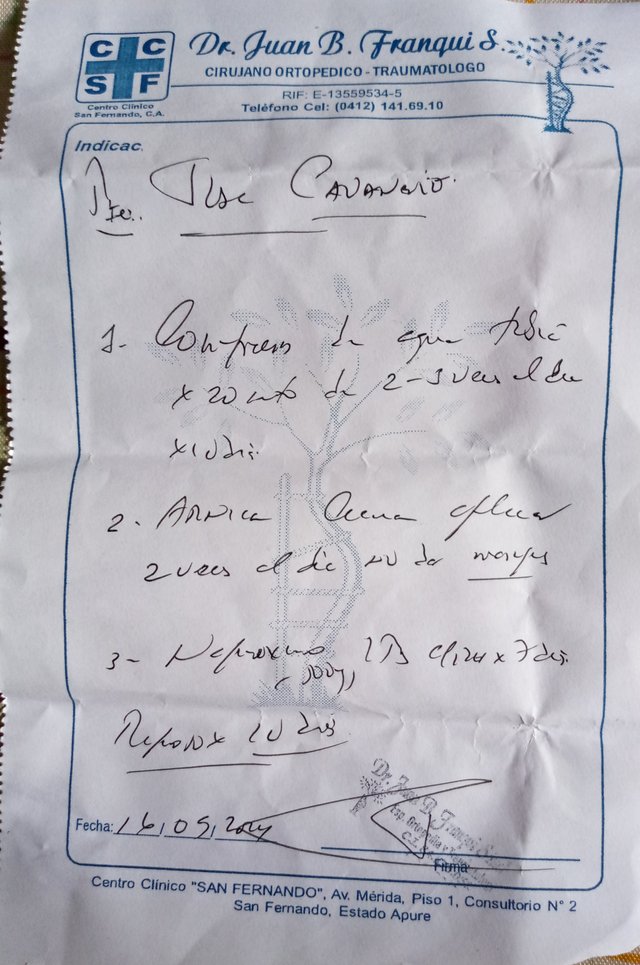 CC
SF
Centro Clínico
San Fernando, C.A.
Dr. Juan B. Franqui S.
CIRUJANO ORTOPEDICO - TRAUMATOLOGO
RIF: E-13559534-5
Teléfono Cel: (0412) 141.69.10
Indicac.
1- Compresas de agua tibia
x 20 mts de 2-3 veces al dia
x 10 dias
2. Arnica Crema aplicar
2 veces al dia
3- Naproxeno 1TB c/12h x 7 dias
Reposo x 10 dias
Fecha: 16/05/2024
Dr. Juan B. Franqui S.
Firma
Centro Clínico "SAN FERNANDO", Av. Mérida, Piso 1, Consultorio N° 2
San Fernando, Estado Apure